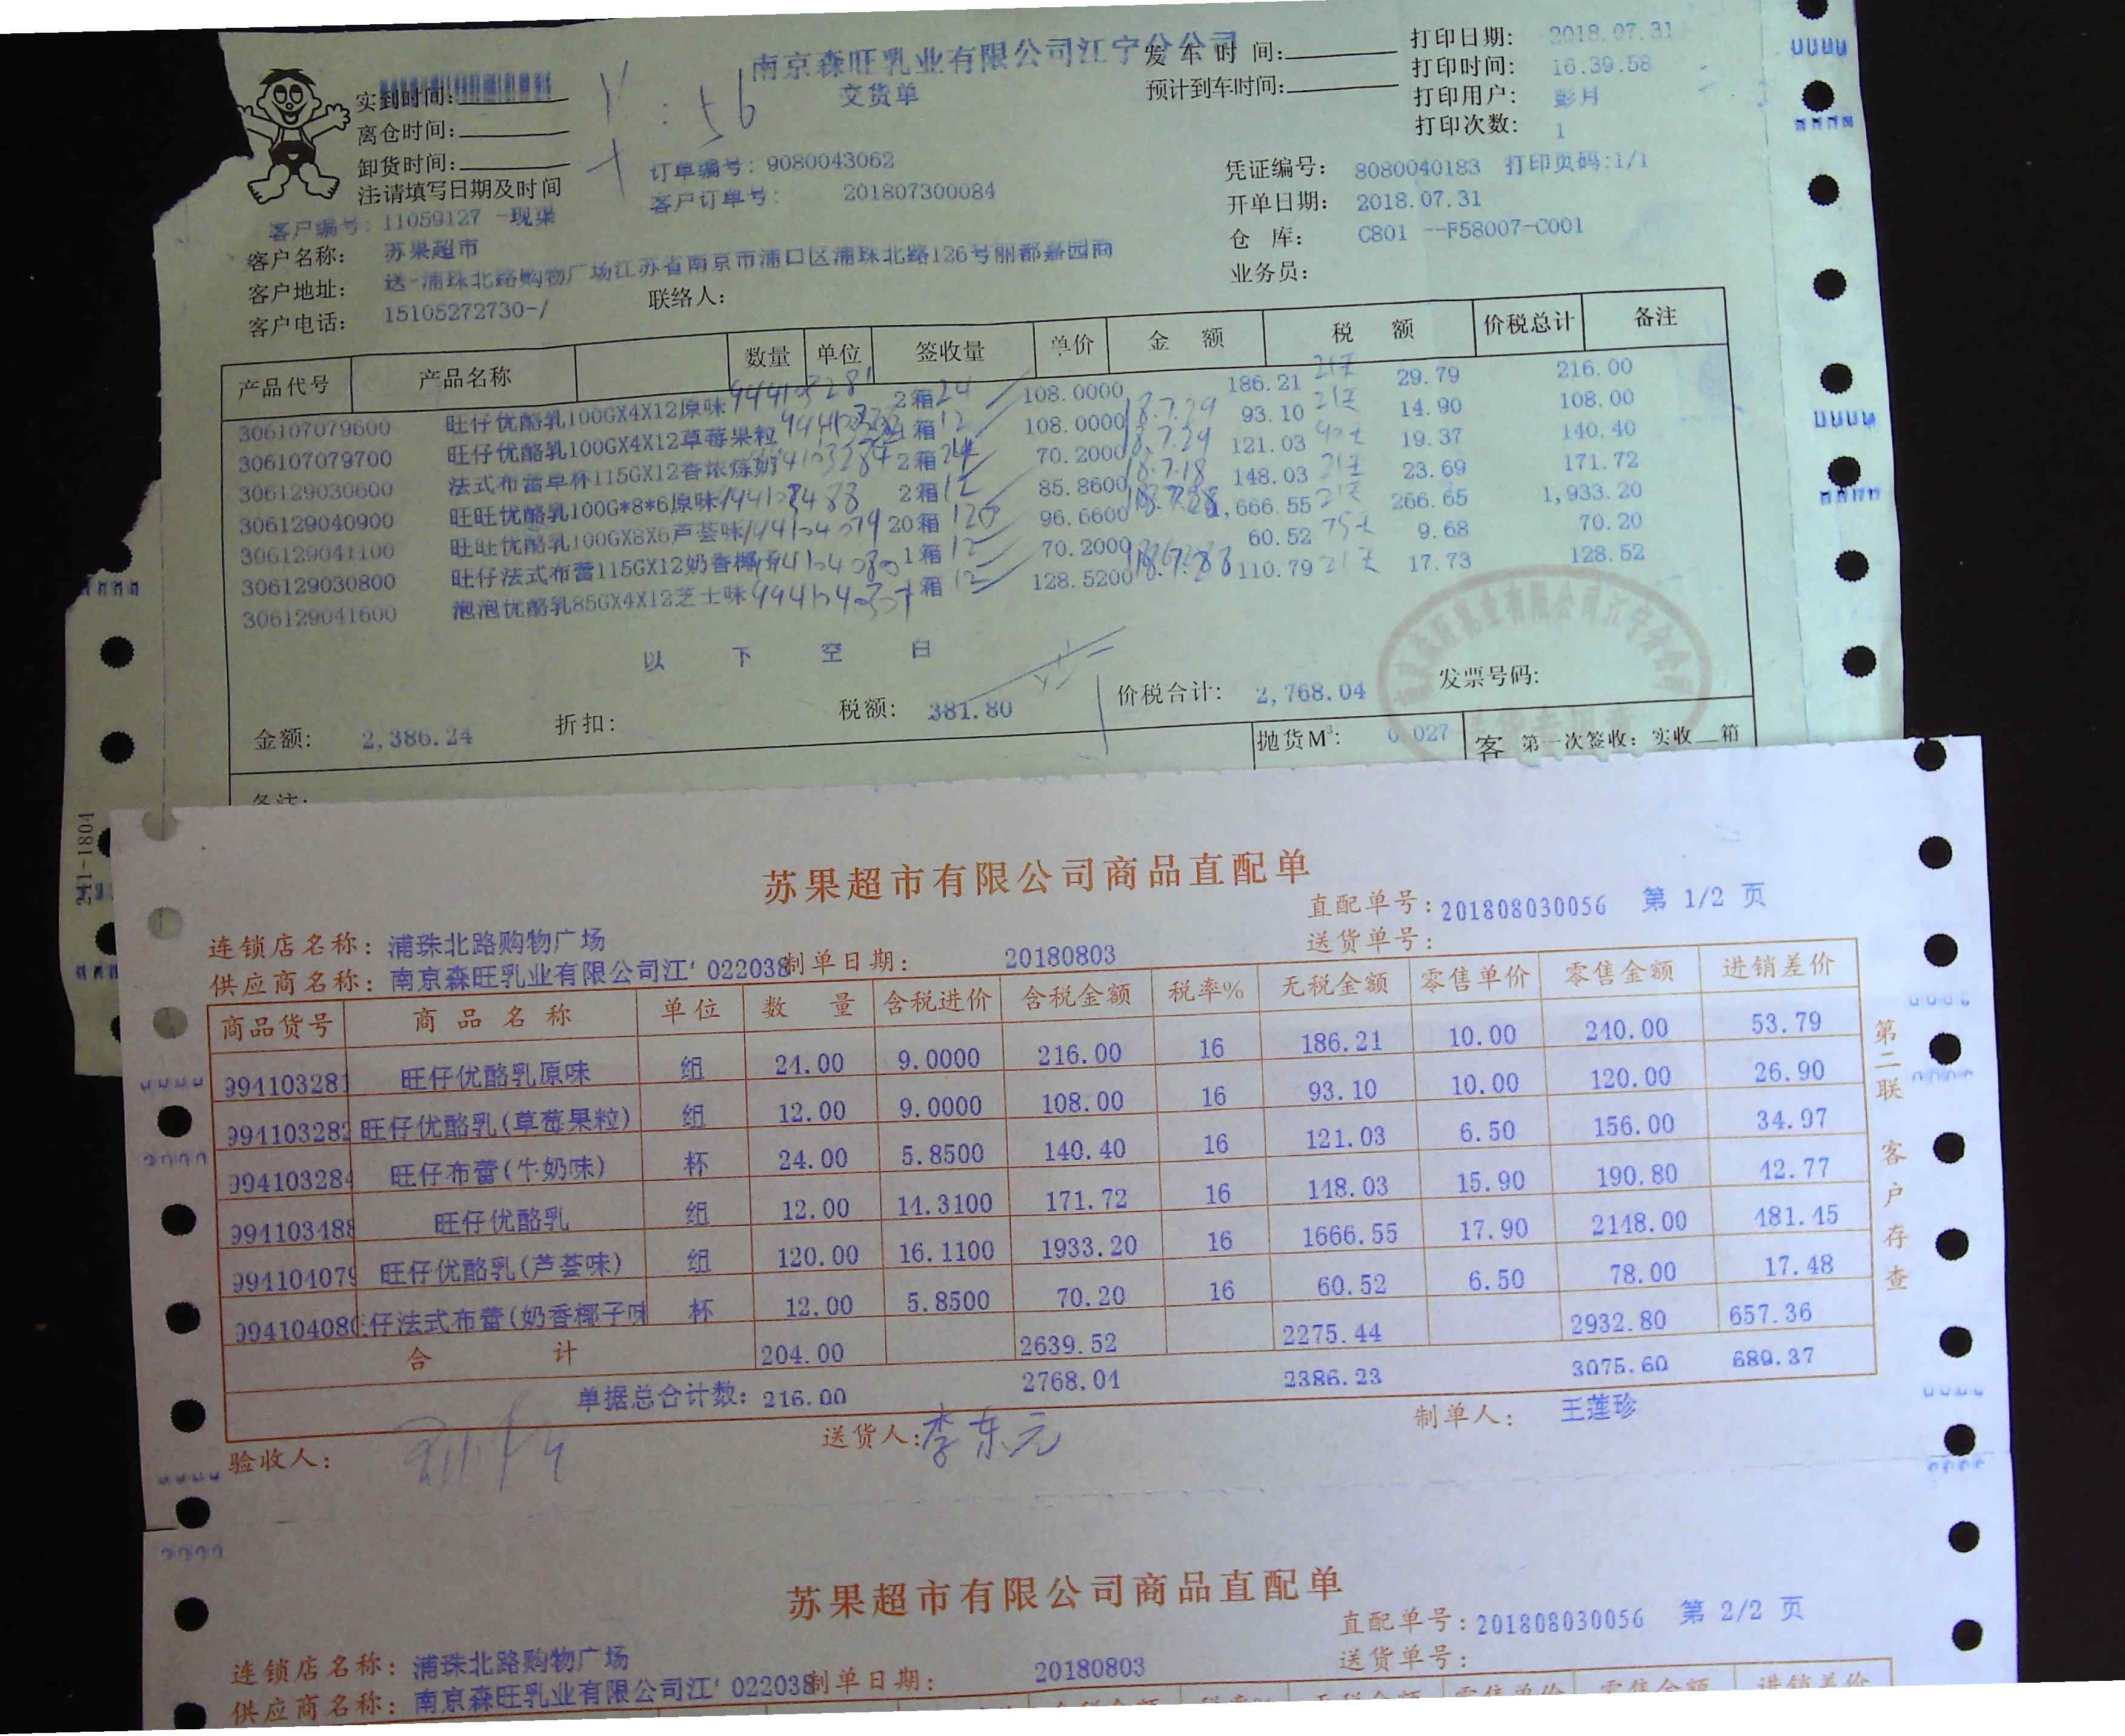 南京森旺乳业有限公司江宁分公司
交货单
实到时间:
离仓时间:
卸货时间:
注:请填写日期及时间
发车时间:
预计到车时间:
打印日期: 2018.07.31
打印时间: 16.39.58
打印用户: 彭月
打印次数: 1
订单编号: 9080043062
客户订单号: 201807300084
凭证编号: 8080040183 打印页码:1/1
开单日期: 2018.07.31
仓 库: C801 --F58007-C001
业务员:
客户编号: 11059127 -现渠
客户名称: 苏果超市
客户地址: 送-浦珠北路购物广场江苏省南京市浦口区浦珠北路126号丽都嘉园商
客户电话: 15105272730-/ 联络人:
产品代号 产品名称 数量 单位 签收量 单价 金 额 税 额 价税总计 备注
306107079600 旺仔优酪乳100GX4X12原味 2箱 24 108.0000 186.21 21天 29.79 216.00
306107079700 旺仔优酪乳100GX4X12草莓果粒 箱 12 108.0000 18.7.29 93.10 21天 14.90 108.00
306129030600 法式布蕾单杯115GX12香浓炼奶 2箱 24 70.2000 18.7.29 121.03 19.37 140.40
306129040900 旺旺优酪乳100G*8*6原味 2箱 12 85.8600 18.7.18 148.03 21天 23.69 171.72
306129041100 旺旺优酪乳100GX8X6芦荟味 20箱 120 96.6600 1,666.55 21天 266.65 1,933.20
306129030800 旺仔法式布蕾115GX12奶香椰子 1箱 12 70.2000 60.52 75天 9.68 70.20
306129041600 泡泡优酪乳85GX4X12芝士味 箱 12 128.5200 110.79 21天 17.73 128.52
以 下 空 白
金额: 2,386.24 折扣: 税额: 381.80 价税合计: 2,768.04 发票号码:
备注:
抛货M³: 0.027 客 第一次签收: 实收__箱
苏果超市有限公司商品直配单
直配单号: 201808030056 第 1/2 页
连锁店名称: 浦珠北路购物广场
送货单号:
供应商名称: 南京森旺乳业有限公司江' 022038 制单日期: 20180803
商品货号 商品名称 单位 数 量 含税进价 含税金额 税率% 无税金额 零售单价 零售金额 进销差价
994103281 旺仔优酪乳原味 组 24.00 9.0000 216.00 16 186.21 10.00 240.00 53.79
994103282 旺仔优酪乳(草莓果粒) 组 12.00 9.0000 108.00 16 93.10 10.00 120.00 26.90
994103284 旺仔布蕾(牛奶味) 杯 24.00 5.8500 140.40 16 121.03 6.50 156.00 34.97
994103488 旺仔优酪乳 组 12.00 14.3100 171.72 16 148.03 15.90 190.80 42.77
994104079 旺仔优酪乳(芦荟味) 组 120.00 16.1100 1933.20 16 1666.55 17.90 2148.00 481.45
994104080 仔法式布蕾(奶香椰子味 杯 12.00 5.8500 70.20 16 60.52 6.50 78.00 17.48
合 计 204.00 2639.52 2275.44 2932.80 657.36
单据总合计数: 216.00 2768.04 2386.23 3075.60 689.37
验收人: 送货人: 李东元 制单人: 王莲珍
第二联 客户存查
苏果超市有限公司商品直配单
直配单号: 201808030056 第 2/2 页
连锁店名称: 浦珠北路购物广场
送货单号:
供应商名称: 南京森旺乳业有限公司江' 022038 制单日期: 20180803